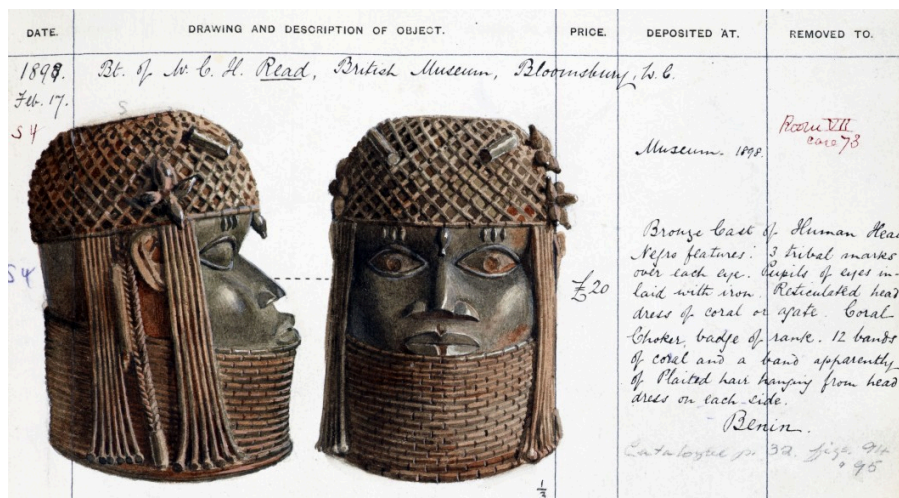 DATE. DRAWING AND DESCRIPTION OF OBJECT. PRICE. DEPOSITED AT. REMOVED TO.
1898. Bt. of W. C. H. Read, British Museum, Bloomsbury, W.C.
Feb. 17.
S
S 4
Room VII
case 73
Museum. 1898.
Bronze Cast of Human Head
Negro features: 3 tribal marks
over each eye. Pupils of eyes in-
S4
laid with iron. Reticulated head
£20
dress of coral or agate. Coral
Choker, badge of rank. 12 bands
of coral and a band apparently
of Plaited hair hanging from head
dress on each side.
Benin.
Catalogue p. 32. figs. 94
" 95
1/3